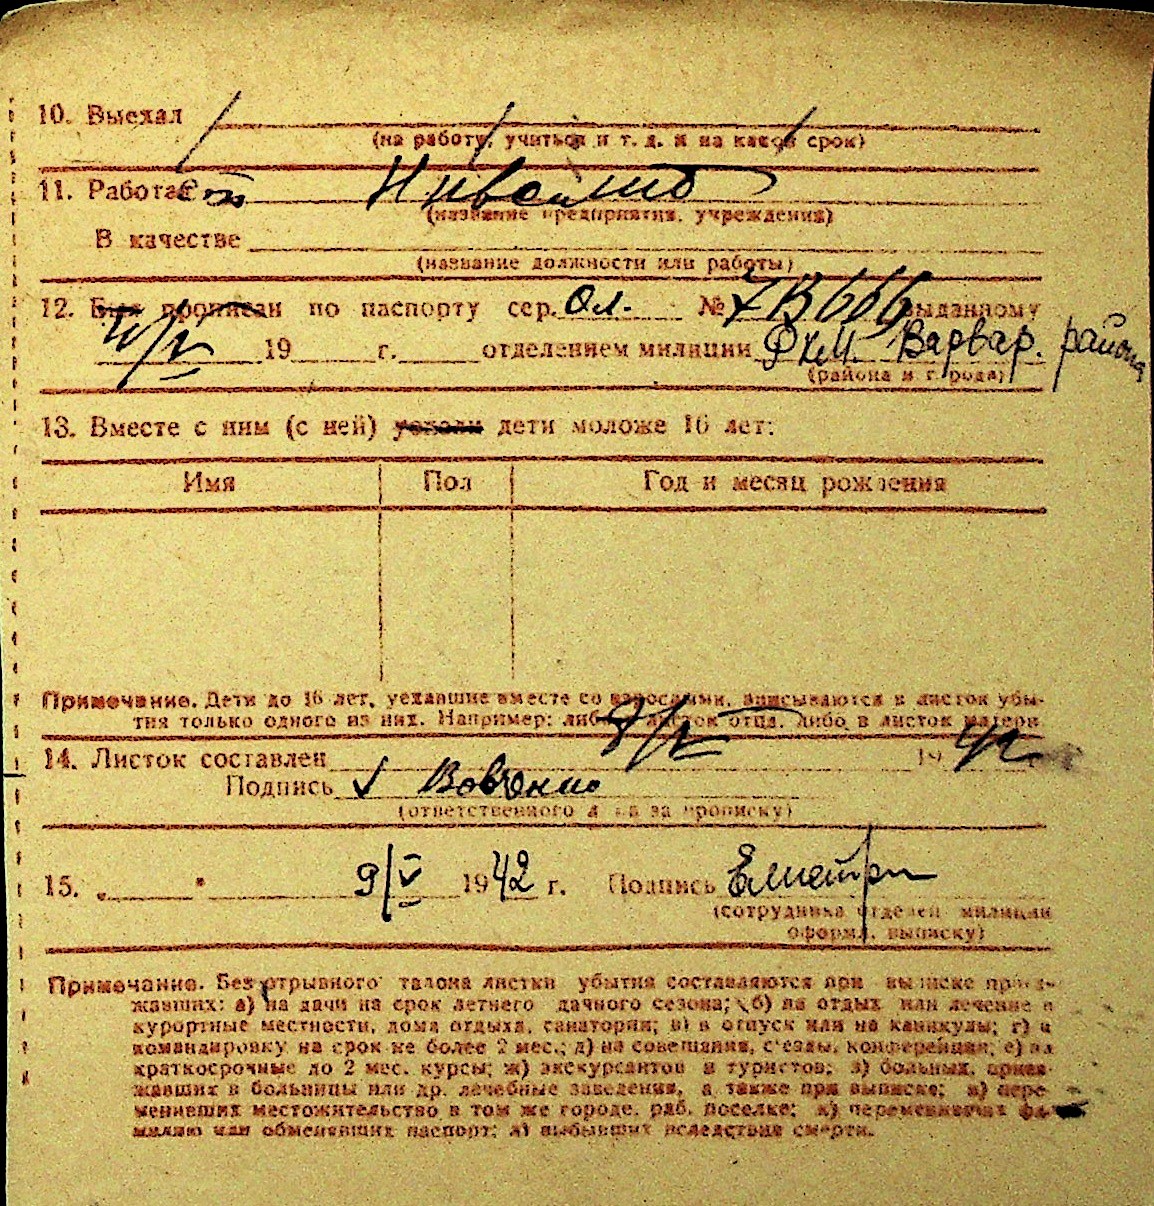 10. Выехал
(на работу, учиться и т. д. и на какой срок)
11. Работает Инвалид
(название предприятия, учреждения)
В качестве
(название должности или работы)
12. Был прописан по паспорту сер. Ол. № выданному
19 г. отделением милиции РКМ. Варвар. района
(района и города)
13. Вместе с ним (с ней) уехали дети моложе 16 лет:
Имя Пол Год и месяц рождения
Примечание. Дети до 16 лет, уехавшие вместе со взрослыми, вписываются в листок убы-
тия только одного из них. Например: либо в листок отца, либо в листок матери
14. Листок составлен 9/V 19 42
Подпись
(ответственного за прописку)
15. „ " 9/V 1942 г. Подпись
(сотрудника отделен милиции
оформл. выписку)
Примечание. Без отрывного талона листки убытия составляются при выписке приез-
жавших: а) на дачи на срок летнего дачного сезона; б) на отдых или лечение в
курортные местности, дома отдыха, санатории; в) в отпуск или на каникулы; г) в
командировку на срок не более 2 мес.; д) на совещания, съезды, конференции; е) на
краткосрочные до 2 мес. курсы; ж) экскурсантов и туристов; з) больных, приез-
жавших в больницы или др. лечебные заведения, а также при выписке; и) пере-
менивших местожительство в том же городе, раб. поселке; к) переменивших фа-
милию или обменявших паспорт; л) выбывших вследствие смерти.